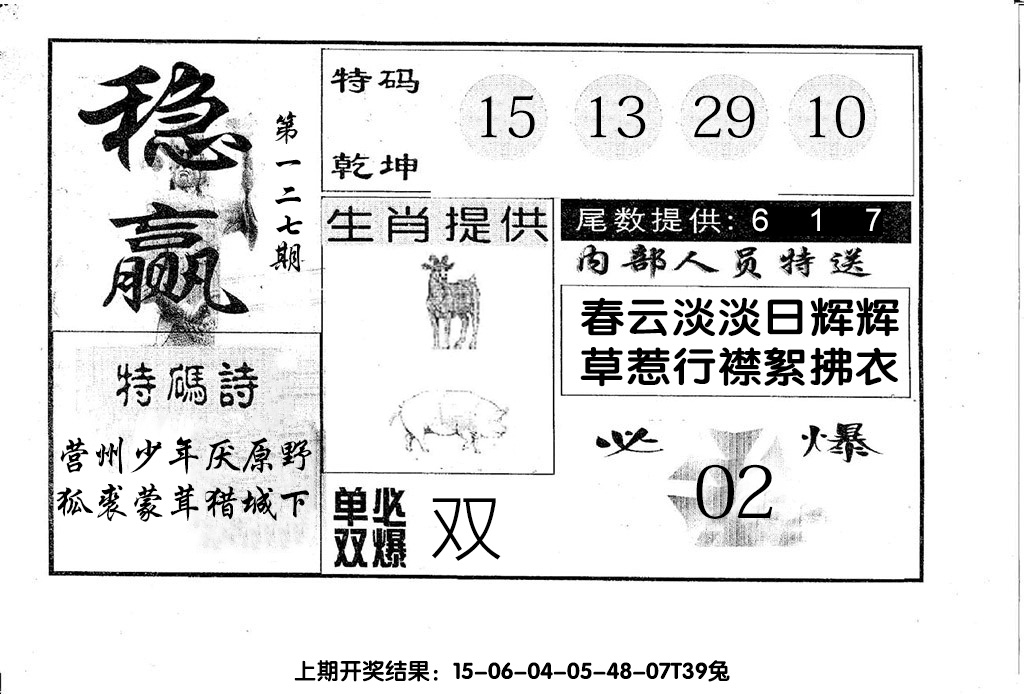 稳赢
第一二七期
特码
乾坤
15 13 29 10
生肖提供
尾数提供: 6 1 7
内部人员特送
春云淡淡日辉辉
草惹行襟絮拂衣
特碼詩
营州少年厌原野
狐裘蒙茸猎城下
单双
必爆
双
必爆
02
上期开奖结果：15-06-04-05-48-07T39兔